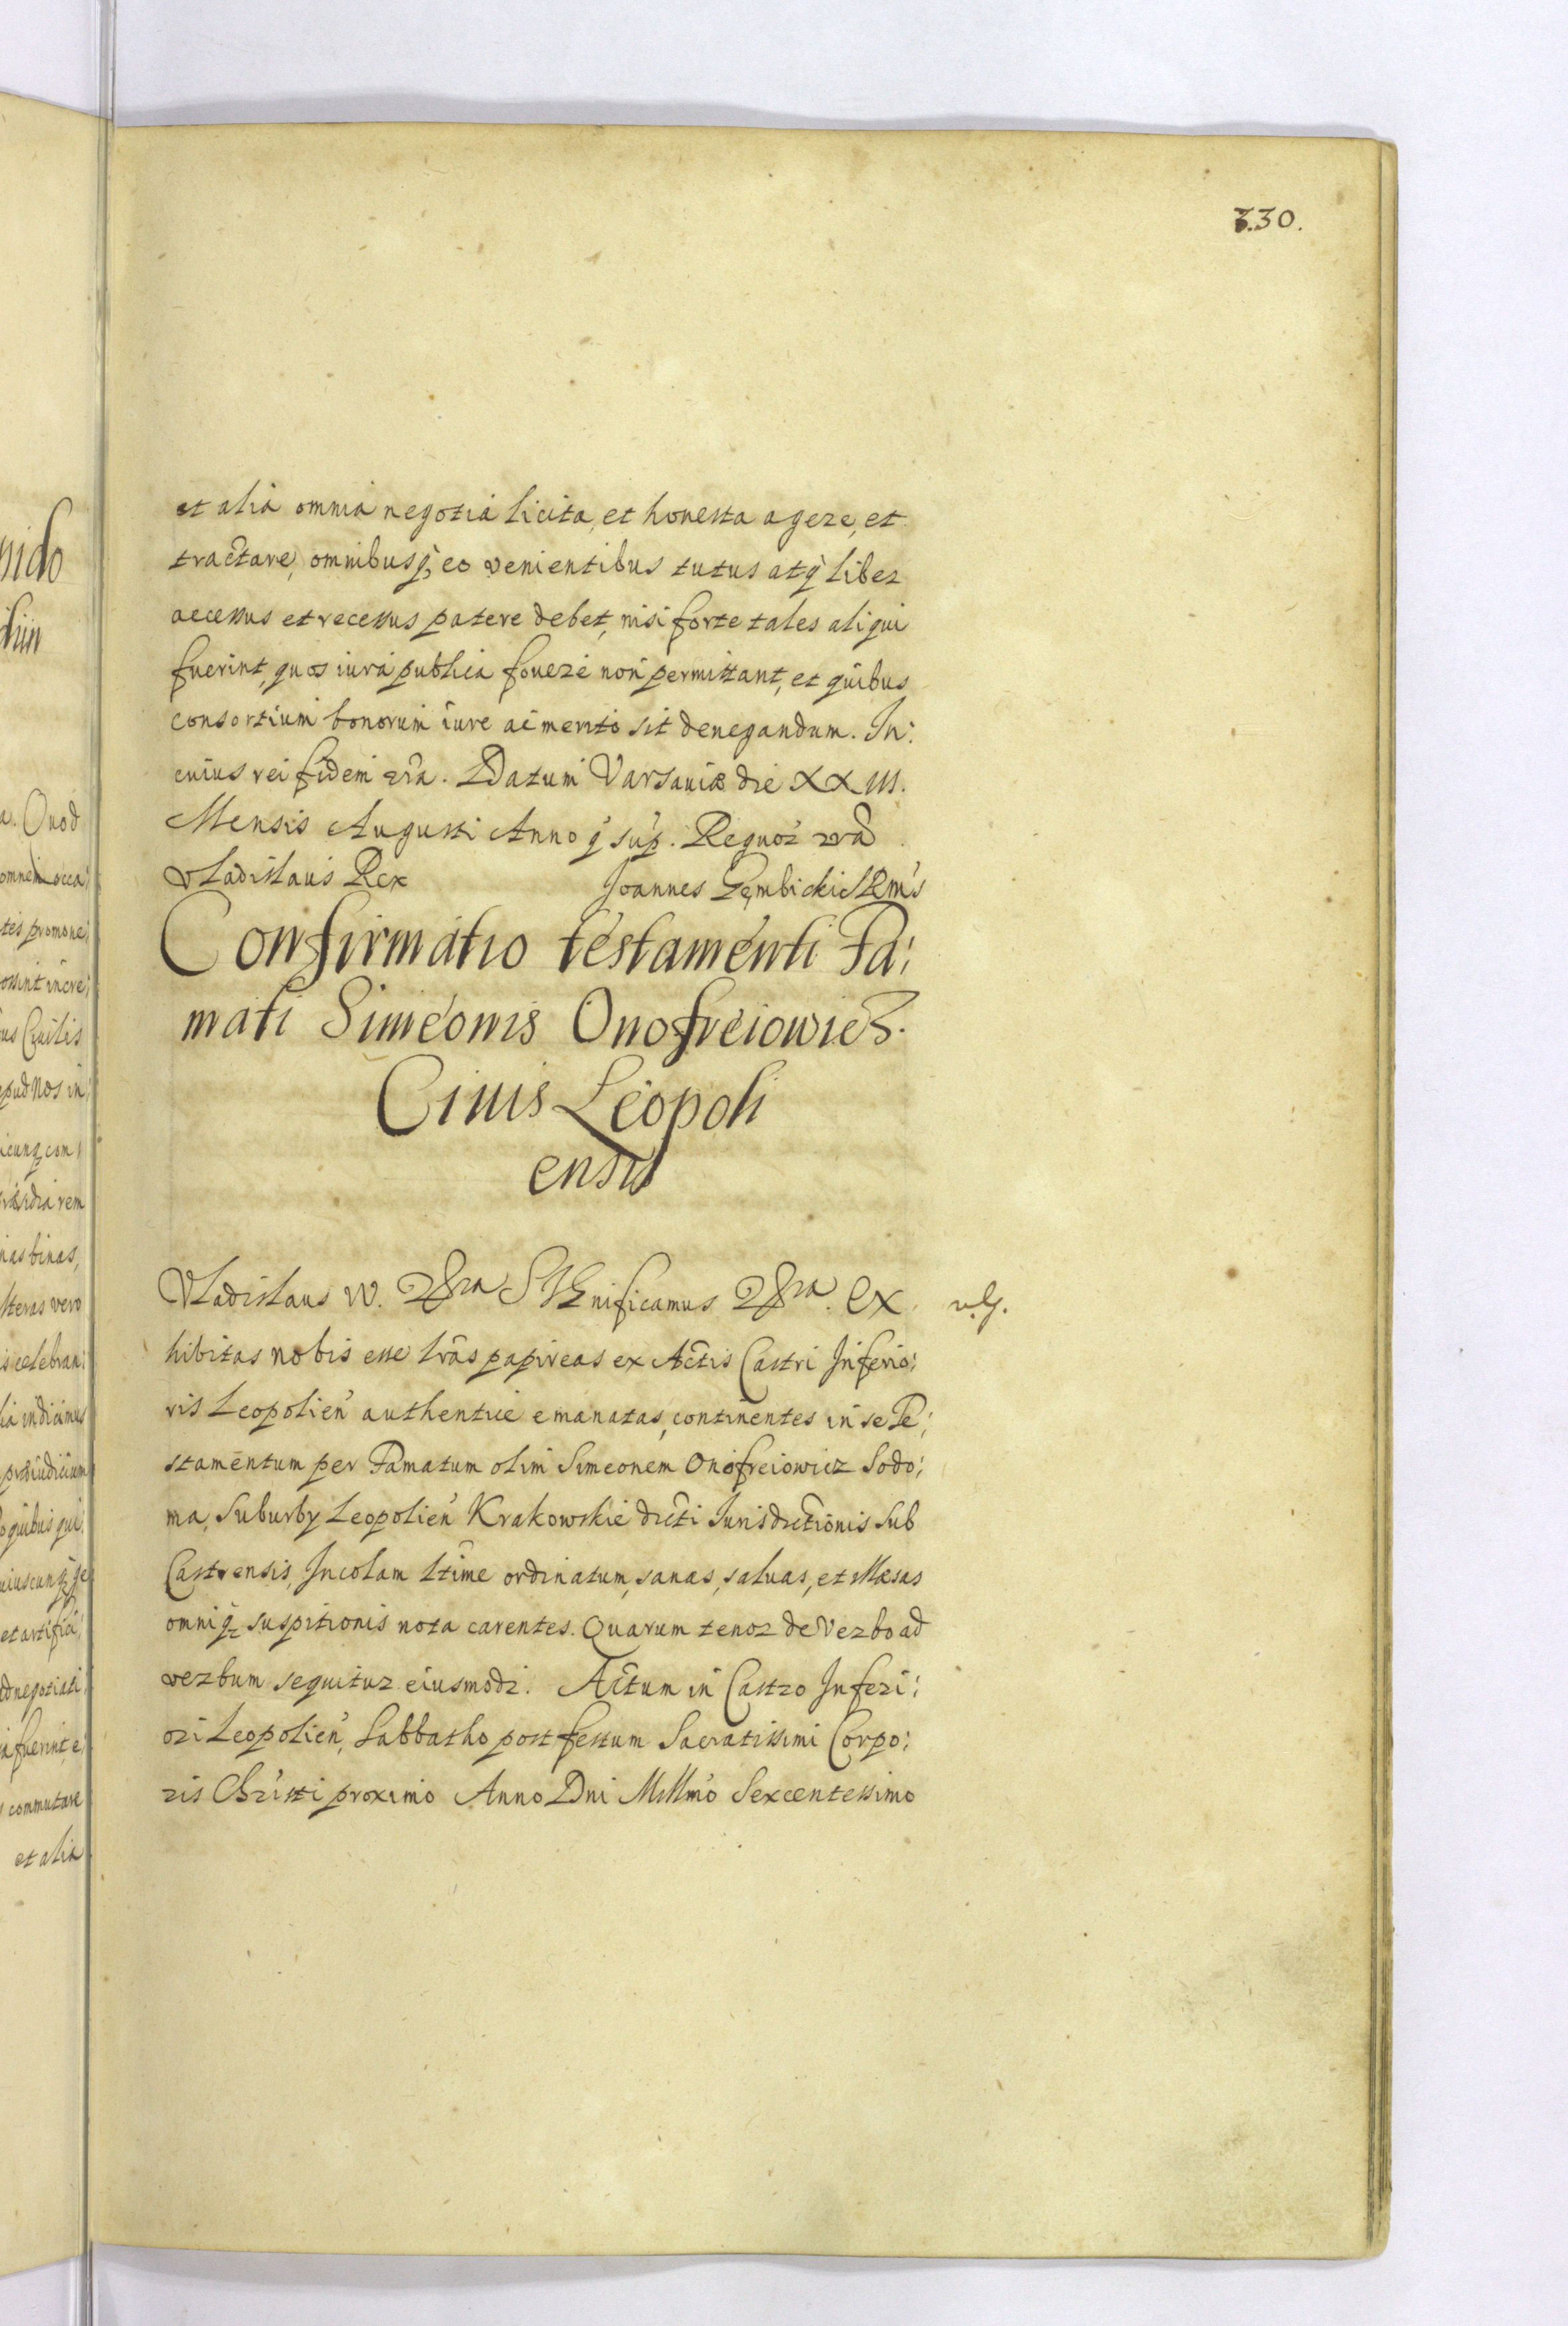 330.
et alia omnia negotia licita, et honesta agere, et
tractare, omnibusq; eo venientibus tutus atq; liber
accessus et recessus patere debet, nisi forte tales aliqui
fuerint, quos iura publica foueri non permittant, et quibus
consortium bonorum iure ac merito sit denegandum. In:
cuius rei fidem etca. Datum Varsauiæ die XXIII.
Mensis Augusti Anno q sup. Regnor
Vladislaus Rex Joannes Gembicki SRMs
Confirmatio testamenti Fa:
mati Simeonis Onofreiowicz.
Ciuis Leopoli
ensis
Vladislaus IV. Significamus Ex
hibitas nobis esse lras papireas ex Actis Castri Inferio:
ris Leopolien authentice emanatas, continentes in se Te:
stamentum per Famatum olim Simeonem Onofreiowicz Sodo:
ma, Suburby Leopolien Krakowskie dicti Iurisdictionis Sub
Castrensis, Incolam ltime ordinatum, sanas, saluas, et illæsas
omniq; suspitionis nota carentes. Quarum tenor de Verbo ad
verbum sequitur eiusmodi. Actum in Castro Inferi:
ori Leopolien, Sabbatho post festum Sacratissimi Corpo:
ris Christi proximo Anno Dni Millmo Sexcentessimo
nido
a. Quod
omnem occa:
tes promone:
ossint incre:
us Ciuilis
apud Nos in:
icunq; con:
sidia rem
nas binas,
lteras vero
is celebran:
lia indicimus
præiudicium
o quibus qui:
uiuscunq; ge
et artifici:
ad negotiati:
a fuerint, e:
commutare
et alia